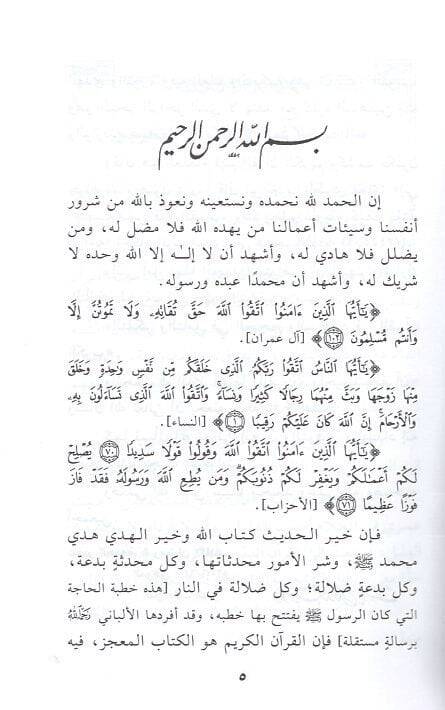 بسم الله الرحمن الرحيم
إن الحمد لله نحمده ونستعينه ونعوذ بالله من شرور
أنفسنا وسيئات أعمالنا من يهده الله فلا مضل له، ومن
يضلل فلا هادي له، وأشهد أن لا إلٰه إلا الله وحده لا
شريك له، وأشهد أن محمدًا عبده ورسوله.
﴿يَٰٓأَيُّهَا ٱلَّذِينَ ءَامَنُوا۟ ٱتَّقُوا۟ ٱللَّهَ حَقَّ تُقَاتِهِۦ وَلَا تَمُوتُنَّ إِلَّا
وَأَنتُم مُّسْلِمُونَ ١٠٢﴾ [آل عمران].
﴿يَٰٓأَيُّهَا ٱلنَّاسُ ٱتَّقُوا۟ رَبَّكُمُ ٱلَّذِى خَلَقَكُم مِّن نَّفْسٍ وَٰحِدَةٍ وَخَلَقَ
مِنْهَا زَوْجَهَا وَبَثَّ مِنْهُمَا رِجَالًا كَثِيرًا وَنِسَآءً ۚ وَٱتَّقُوا۟ ٱللَّهَ ٱلَّذِى تَسَآءَلُونَ بِهِۦ
وَٱلْأَرْحَامَ ۚ إِنَّ ٱللَّهَ كَانَ عَلَيْكُمْ رَقِيبًا ١﴾ [النساء].
﴿يَٰٓأَيُّهَا ٱلَّذِينَ ءَامَنُوا۟ ٱتَّقُوا۟ ٱللَّهَ وَقُولُوا۟ قَوْلًا سَدِيدًا ٧٠ يُصْلِحْ
لَكُمْ أَعْمَٰلَكُمْ وَيَغْفِرْ لَكُمْ ذُنُوبَكُمْ ۗ وَمَن يُطِعِ ٱللَّهَ وَرَسُولَهُۥ فَقَدْ فَازَ
فَوْزًا عَظِيمًا ٧١﴾ [الأحزاب].
فإن خير الحديث كتاب الله وخير الهدي هدي
محمد ﷺ، وشر الأمور محدثاتها، وكل محدثةٍ بدعة،
وكل بدعةٍ ضلالة؛ وكل ضلالة في النار [هذه خطبة الحاجة
التي كان الرسول ﷺ يفتتح بها خطبه، وقد أفردها الألباني رَحِمَهُ اللَّهُ
برسالةٍ مستقلة] فإن القرآن الكريم هو الكتاب المعجز، فيه
٥